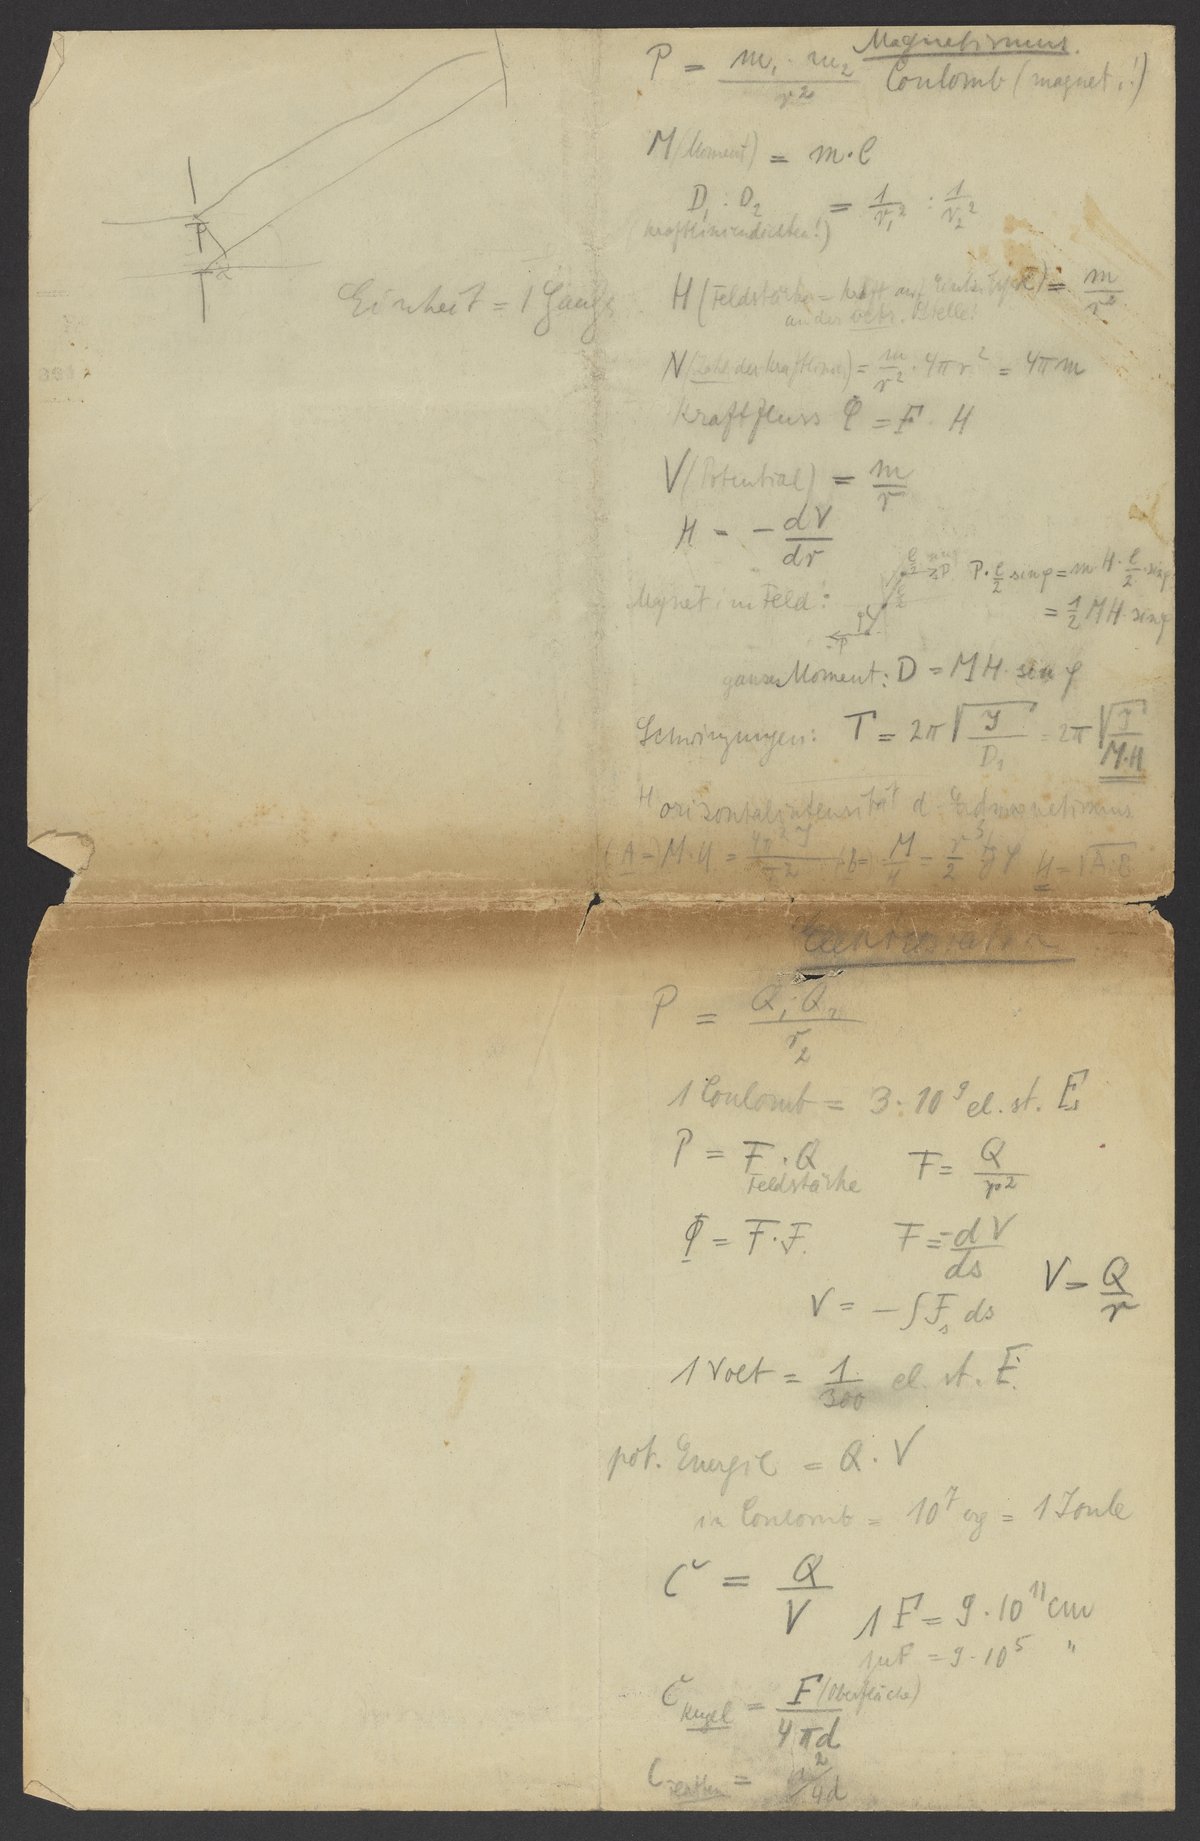 Magnetismus.
P = m₁ · m₂ / r² Coulomb (magnet.!)
M (Moment) = m · l
D₁ : D₂ = 1/r₁² : 1/r₂²
(Kraftliniendichten!)
Einheit = 1 Gauß
H (Feldstärke = Kraft auf Einh. ) = m/r²
an der betr. Stelle!
N (Zahl der Kraftlinien) = m/r² · 4πr² = 4πm
Kraftfluss Φ = F · H
V (Potential) = m/r
H = - dV/dr
Magnet im Feld: P · l/2 sin φ = m · H · l/2 · sin φ
= 1/2 M H · sin φ
ganzes Moment: D = M H · sin φ
Schwingungen: T = 2π √(J/D₁) = 2π √(J/M·H)
Horizontalintensität d. Erdmagnetismus
(A =) M · H = 4π²J/T² (B =) M/H = r³/2 tg φ H = √A·B
Elektrostatik
P = Q₁ · Q₂ / r²
1 Coulomb = 3 · 10⁹ el. st. E.
P = F · Q F = Q/r²
Feldstärke
Φ = F · F. F = -dV/ds
V = Q/r
V = - ∫ Fₛ ds
1 Volt = 1/300 el. st. E.
pot. Energie = Q · V
in Coulomb = 10⁷ erg = 1 Joule
C = Q/V
1 F = 9 · 10¹¹ cm
1 μF = 9 · 10⁵ "
C Kugel = F (Oberfläche) / 4πd
C Platten = r²/4d